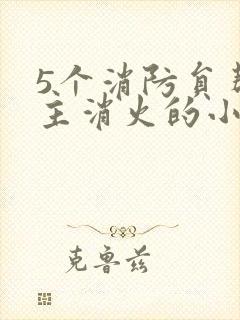 5个消防员
主消火的小
克鲁兹